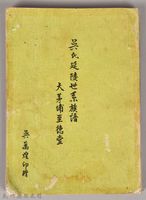 吳氏延陵世系族譜
大茅埔至德堂
吳萬煌印贈